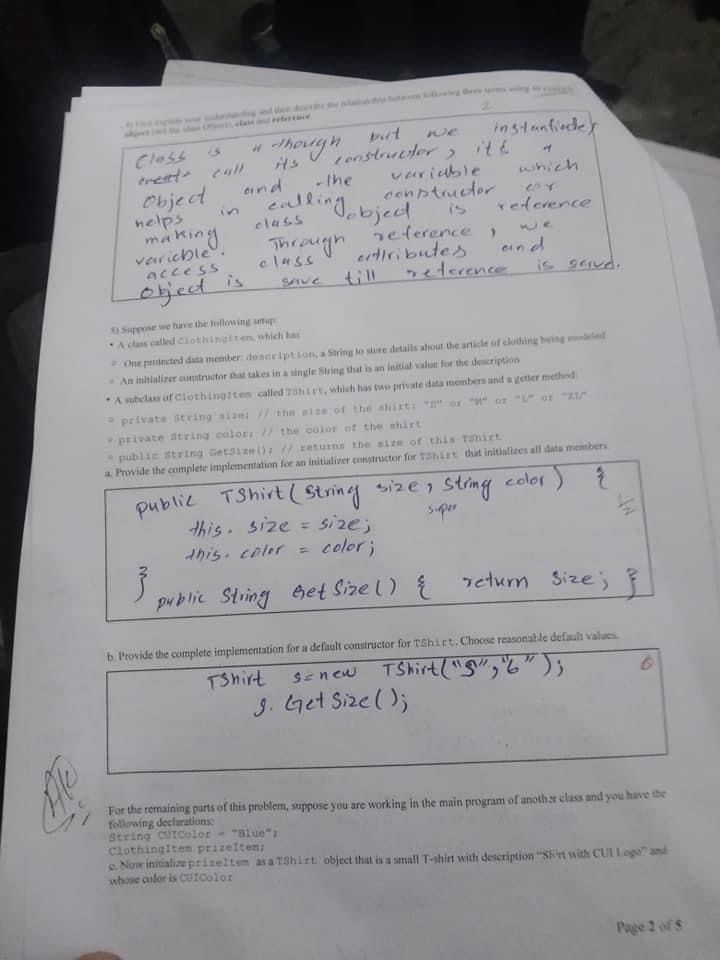 4) First explain your understanding and then describe the relationship between following three terms using an example
object class and reference
2
Class is a though but we instantiate/
create call its constructor, its a
Object and the variable which
helps in calling constructor or
making class object is reference
varicble. Through reference, we
access class attributes and
Object is save till reference is saved.
5) Suppose we have the following setup:
• A class called ClothingItem, which has
o One protected data member: description, a String to store details about the article of clothing being modeled
o An initializer constructor that takes in a single String that is an initial value for the description
• A subclass of ClothingItem called TShirt, which has two private data members and a getter method:
o private String size; // the size of the shirt: "S" or "M" or "L" or "XL"
o private String color; // the color of the shirt
o public String GetSize(); // returns the size of this TShirt
a. Provide the complete implementation for an initializer constructor for TShirt that initializes all data members.
public TShirt(String size, String color) {
super
1/2
this. size = size;
this. color = color;
}
public String Get Size() { return Size; }
b. Provide the complete implementation for a default constructor for TShirt. Choose reasonable default values.
TShirt s = new TShirt("S", "b");
0
s. Get Size();
For the remaining parts of this problem, suppose you are working in the main program of another class and you have the
following declarations:
String CUIColor = "Blue";
ClothingItem prizeItem;
c. Now initialize prizeItem as a TShirt object that is a small T-shirt with description "Shirt with CUI Logo" and
whose color is CUIColor
Page 2 of 5